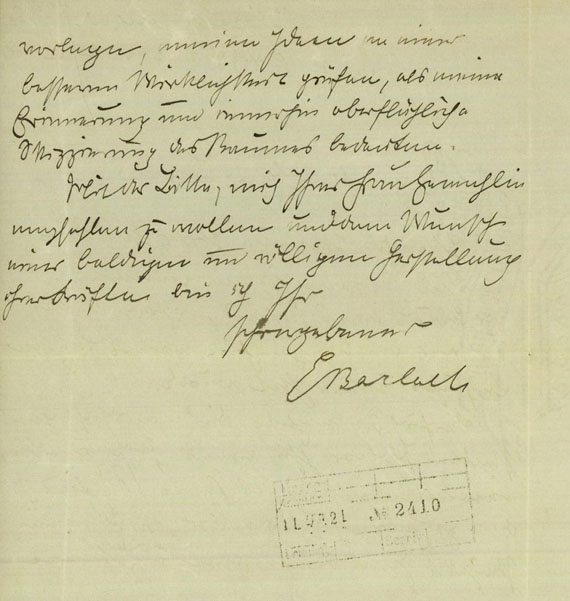 vorlegen, meine Ideen an einer
besseren Wirklichkeit prüfen, als meine
Erinnerung und immerhin oberflächliche
Skizzierung des Raumes bedeuten.
Mit der Bitte, mich Ihrer Frau Gemahlin
empfehlen zu wollen und dem Wunsch
einer baldigen und völligen Herstellung
ihrer Kräfte bin ich Ihr
sehr ergebener
E Barlach
11. 21 № 2410